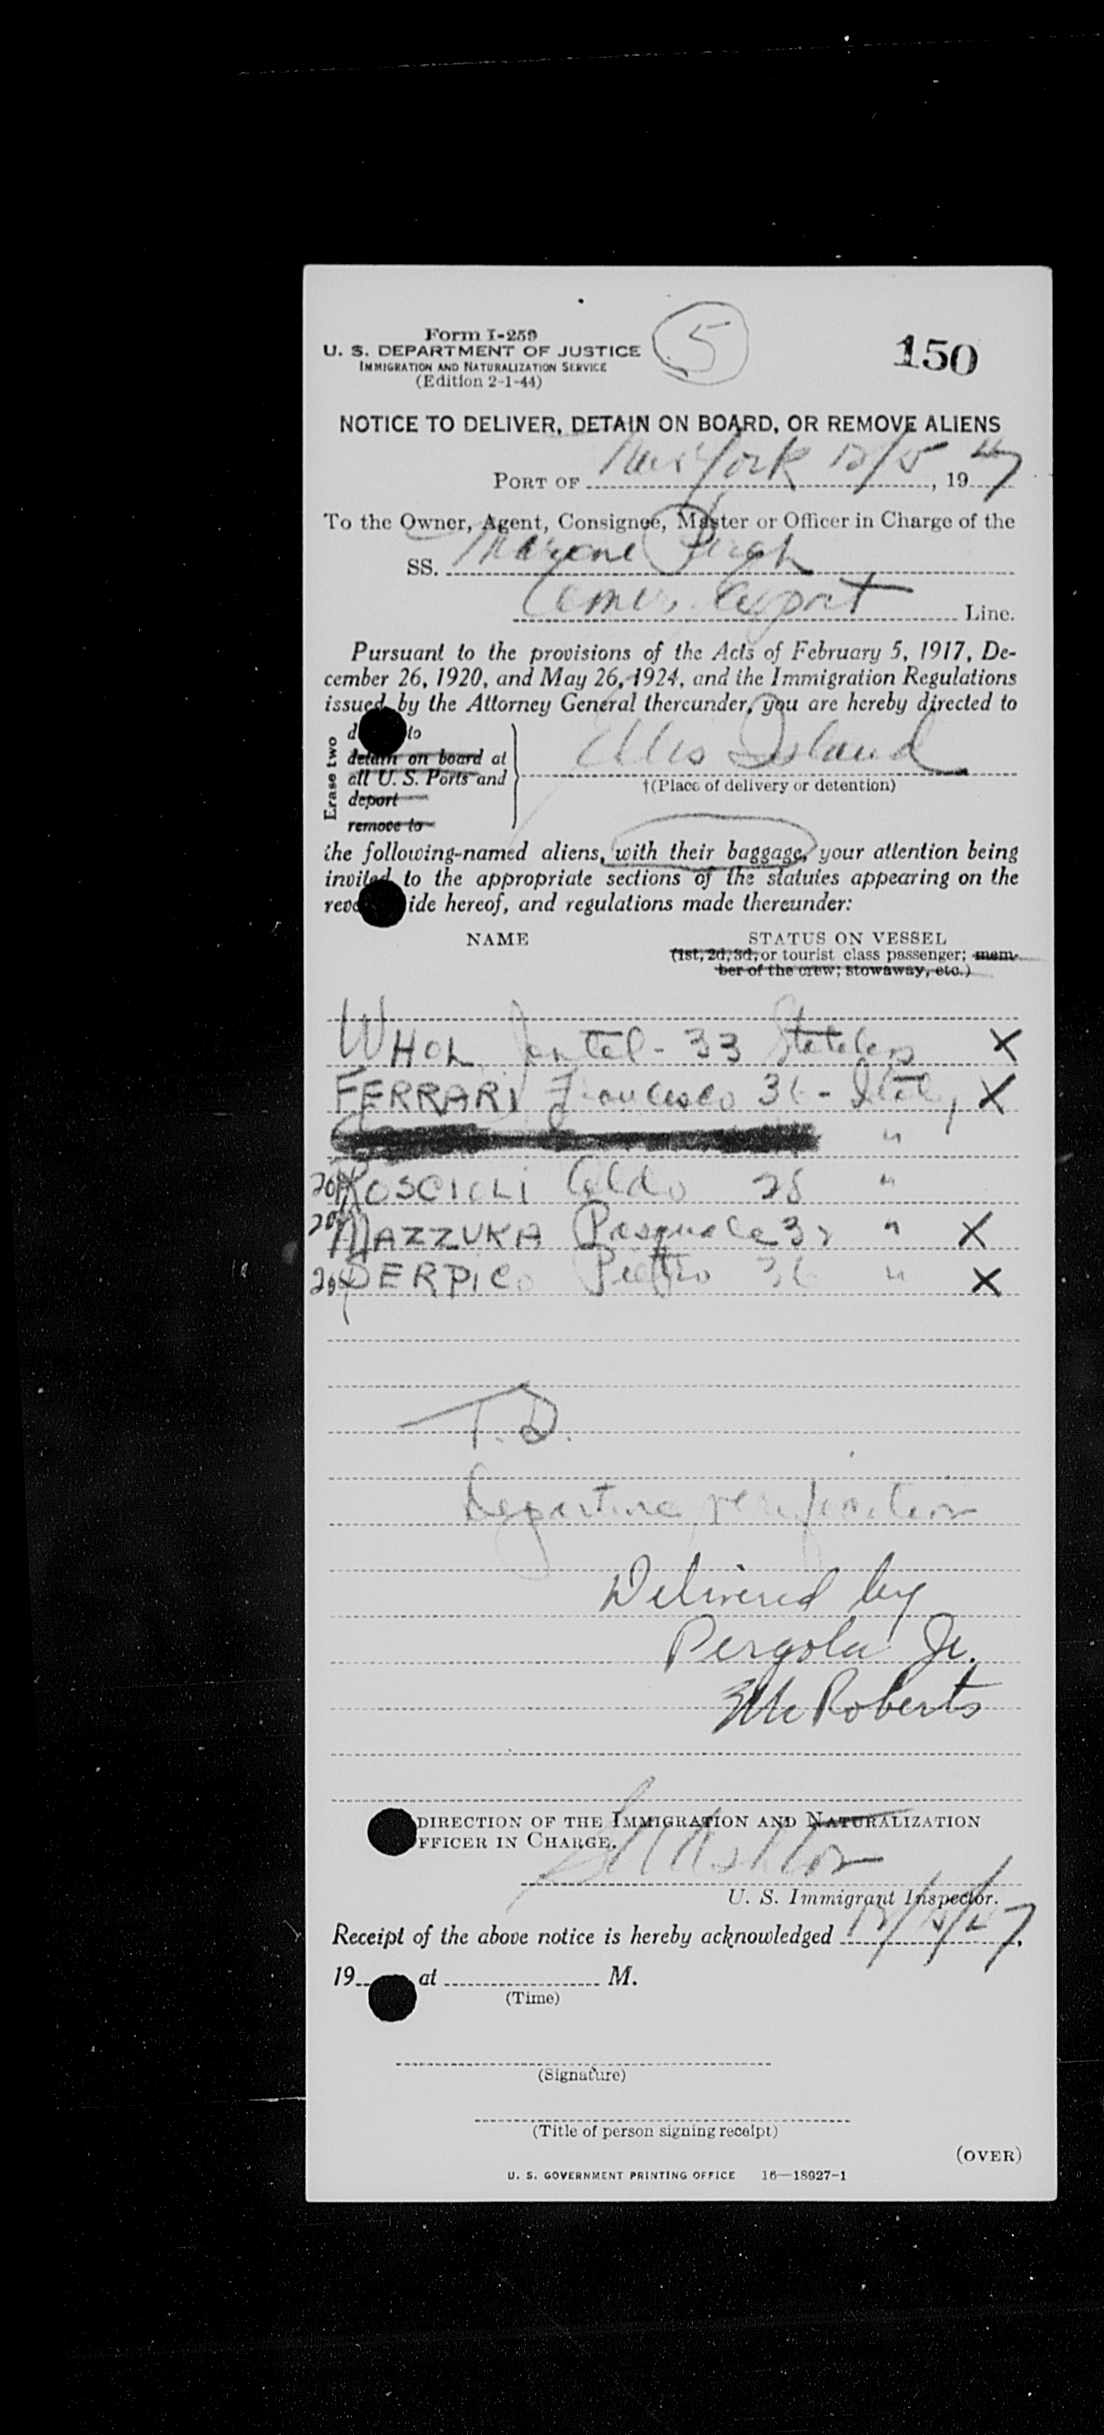 Form I-259
U. S. DEPARTMENT OF JUSTICE
IMMIGRATION AND NATURALIZATION SERVICE
(Edition 2-1-44)
5
150
NOTICE TO DELIVER, DETAIN ON BOARD, OR REMOVE ALIENS
PORT OF New York 12/5, 1947
To the Owner, Agent, Consignee, Master or Officer in Charge of the
SS. Marine
Amer. Export Line.
Pursuant to the provisions of the Acts of February 5, 1917, De-
cember 26, 1920, and May 26, 1924, and the Immigration Regulations
issued by the Attorney General thereunder, you are hereby directed to
Erase two
d to
detain on board at
all U. S. Ports and
deport
remove to
Ellis Island
†(Place of delivery or detention)
the following-named aliens, with their baggage, your attention being
invited to the appropriate sections of the statutes appearing on the
reve ide hereof, and regulations made thereunder:
NAME STATUS ON VESSEL
(1st, 2d, 3d, or tourist class passenger; mem-
ber of the crew; stowaway, etc.)
WHOL 33 X
FERRARI Francesco 36 - X
"
ROSCIOLI Aldo 28 "
MAZZUKA Pasquale 32 " X
SERPICO Pietro 36 " X
T.D.
Departure verification
Delivered by
Pergola Jr.
McRoberts
DIRECTION OF THE IMMIGRATION AND NATURALIZATION
FFICER IN CHARGE.
U. S. Immigrant Inspector.
Receipt of the above notice is hereby acknowledged 12/5/47,
19 at M.
(Time)
(Signature)
(Title of person signing receipt)
(OVER)
U. S. GOVERNMENT PRINTING OFFICE 16—18927-1